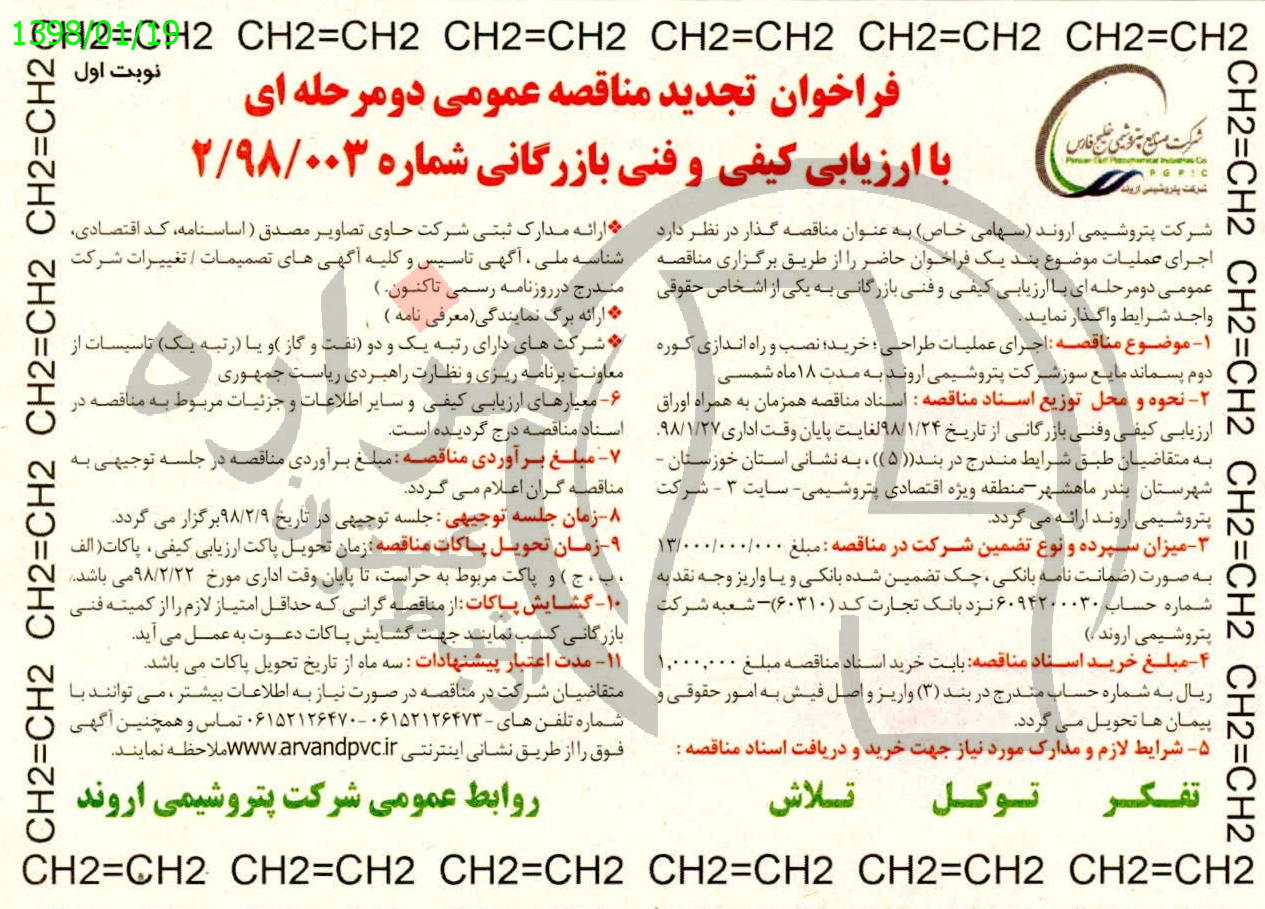 1398/01/19
CH2=CH2 CH2=CH2 CH2=CH2 CH2=CH2 CH2=CH2 CH2=CH2
نوبت اول
فراخوان تجدید مناقصه عمومی دومرحله ای
با ارزیابی کیفی و فنی بازرگانی شماره ۲/۹۸/۰۰۳
شرکت صنایع پتروشیمی خلیج فارس
Persian Gulf Petrochemical Industries Co
P G P I C
شرکت پتروشیمی اروند
شرکت پتروشیمی اروند (سهامی خاص) به عنوان مناقصه گذار در نظر دارد
اجرای عملیات موضوع بند یک فراخوان حاضر را از طریق برگزاری مناقصه
عمومی دومرحله ای با ارزیابی کیفی و فنی بازرگانی به یکی از اشخاص حقوقی
واجد شرایط واگذار نماید.
۱- موضوع مناقصه : اجرای عملیات طراحی ؛ خرید؛ نصب و راه اندازی کوره
دوم پسماند مایع سوز شرکت پتروشیمی اروند به مدت ۱۸ ماه شمسی
۲- نحوه و محل توزیع اسناد مناقصه : اسناد مناقصه همزمان به همراه اوراق
ارزیابی کیفی وفنی بازرگانی از تاریخ ۹۸/۱/۲۴ لغایت پایان وقت اداری ۹۸/۱/۲۷.
به متقاضیان طبق شرایط مندرج در بند(( ۵ )) ، به نشانی استان خوزستان -
شهرستان بندر ماهشهر – منطقه ویژه اقتصادی پتروشیمی- سایت ۳ - شرکت
پتروشیمی اروند ارائه می گردد.
۳- میزان سپرده و نوع تضمین شرکت در مناقصه : مبلغ ۱۳/۰۰۰/۰۰۰/۰۰۰
به صورت (ضمانت نامه بانکی ، چک تضمین شده بانکی و یا واریز وجه نقد به
شماره حساب ۶۰۹۴۲۰۰۰۳۰ نزد بانک تجارت کد (۶۰۳۱۰) – شعبه شرکت
پتروشیمی اروند )
۴- مبلغ خرید اسناد مناقصه: بابت خرید اسناد مناقصه مبلغ ۱,۰۰۰,۰۰۰
ریال به شماره حساب مندرج در بند (۳) واریز و اصل فیش به امور حقوقی و
پیمان ها تحویل می گردد.
۵- شرایط لازم و مدارک مورد نیاز جهت خرید و دریافت اسناد مناقصه :
❖ ارائه مدارک ثبتی شرکت حاوی تصاویر مصدق ( اساسنامه، کد اقتصادی،
شناسه ملی ، آگهی تاسیس و کلیه آگهی های تصمیمات / تغییرات شرکت
مندرج درروزنامه رسمی تاکنون. )
❖ ارائه برگ نمایندگی(معرفی نامه )
❖ شرکت های دارای رتبه یک و دو (نفت و گاز )و یا (رتبه یک) تاسیسات از
معاونت برنامه ریزی و نظارت راهبردی ریاست جمهوری
۶- معیارهای ارزیابی کیفی و سایر اطلاعات و جزئیات مربوط به مناقصه در
اسناد مناقصه درج گردیده است.
۷- مبلغ برآوردی مناقصه : مبلغ برآوردی مناقصه در جلسه توجیهی به
مناقصه گران اعلام می گردد.
۸- زمان جلسه توجیهی : جلسه توجیهی در تاریخ ۹۸/۲/۹ برگزار می گردد.
۹- زمان تحویل پاکات مناقصه : زمان تحویل پاکت ارزیابی کیفی ، پاکات( الف
، ب ، ج ) و پاکت مربوط به حراست، تا پایان وقت اداری مورخ ۹۸/۲/۲۲ می باشد.
۱۰- گشایش پاکات : از مناقصه گرانی که حداقل امتیاز لازم را از کمیته فنی
بازرگانی کسب نمایند جهت گشایش پاکات دعوت به عمل می آید.
۱۱- مدت اعتبار پیشنهادات : سه ماه از تاریخ تحویل پاکات می باشد.
متقاضیان شرکت در مناقصه در صورت نیاز به اطلاعات بیشتر ، می توانند با
شماره تلفن های - ۰۶۱۵۲۱۲۶۴۷۳ - ۰۶۱۵۲۱۲۶۴۷۰ تماس و همچنین آگهی
فوق را از طریق نشانی اینترنتی www.arvandpvc.ir ملاحظه نمایند.
تفکر توکل تلاش
روابط عمومی شرکت پتروشیمی اروند
CH2=CH2 CH2=CH2 CH2=CH2 CH2=CH2
CH2=CH2 CH2=CH2 CH2=CH2 CH2=CH2
CH2=CH2 CH2=CH2 CH2=CH2 CH2=CH2 CH2=CH2 CH2=CH2
هزاره